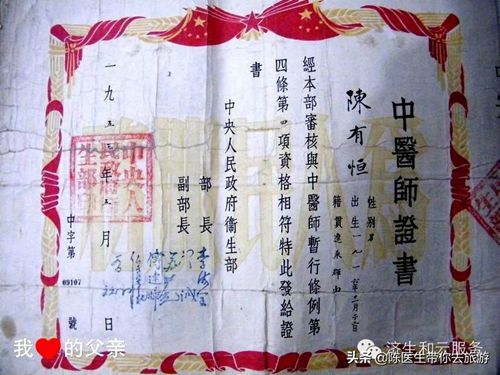 中醫師證書
陳有恒
性別男
出生一九一
籍貫
經本部審核與中醫師暫行條例第
四條第四項資格相符特此發給證
書
中央人民政府衛生部
部長 李德全
副部長
一九五三年五月 日
中字第 09107 號
我❤的父亲
济生和云服务
头条 @陈医生带你去旅游